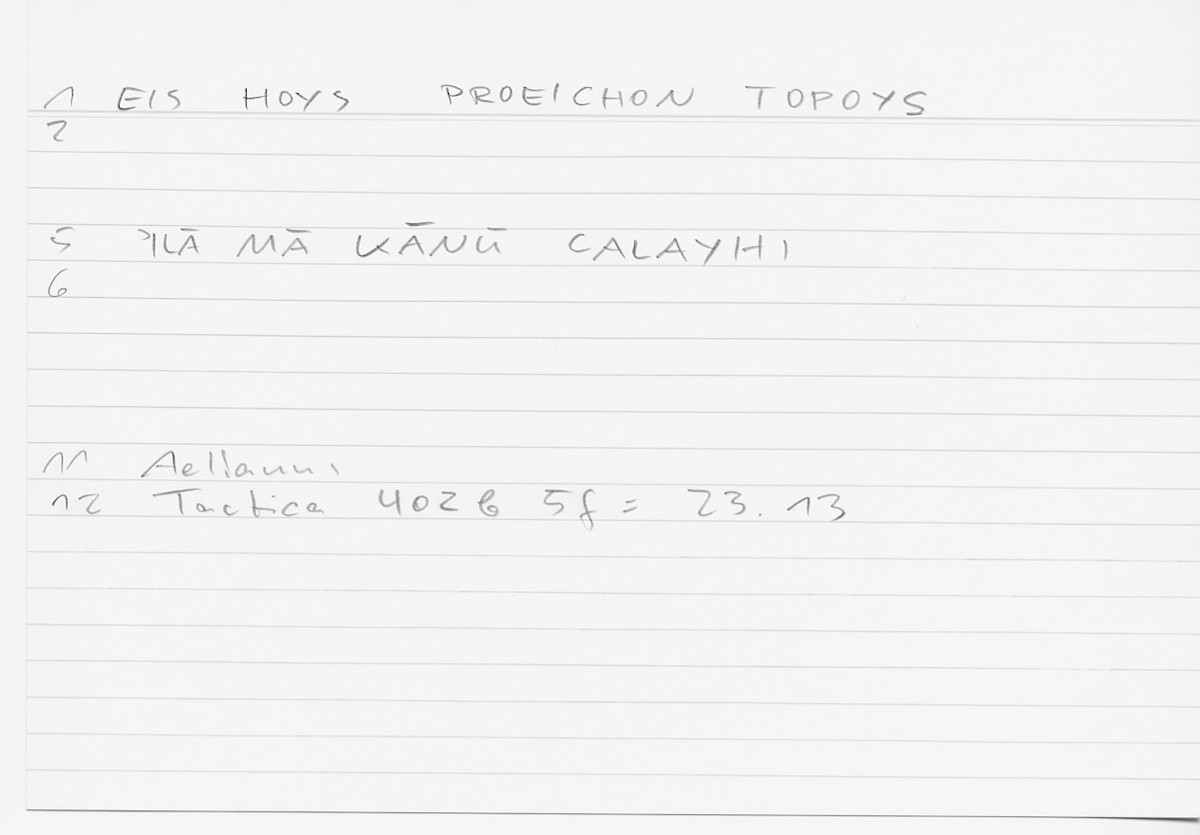 1 EIS HOYS PROEICHON TOPOYS
2
5 ʾILĀ MĀ KĀNŪ CALAYHI
6
11 Aeliani
12 Tactica 402b 5f = 23.13